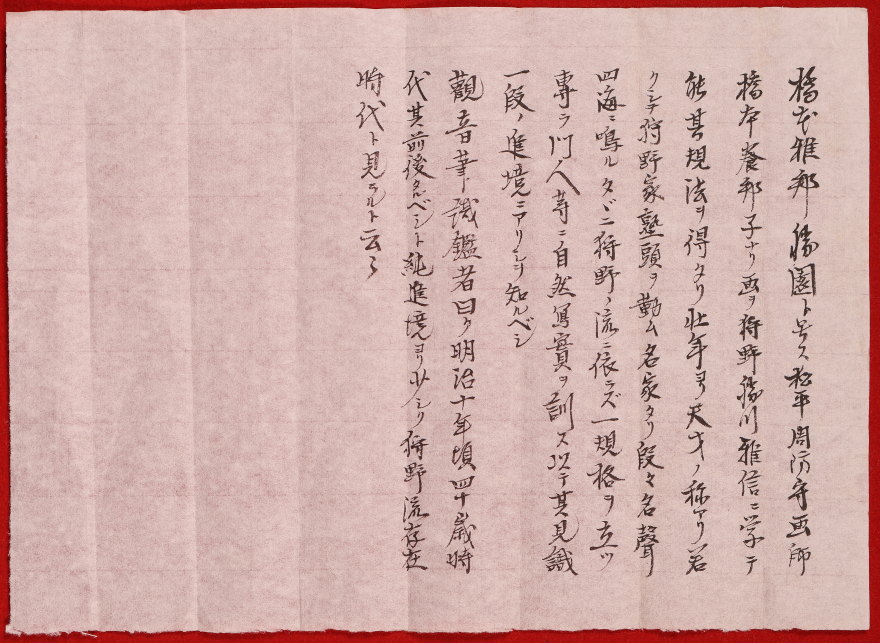 橋本雅邦ハ勝園ト号ス松平周防守画師
橋本養邦ノ子ナリ画ヲ狩野勝川雅信ニ学テ
能其規法ヲ得タリ壮年ヨリ天才ノ称アリ若
クシテ狩野家塾頭ヲ勤ム名家タリ段々名聲
四海ニ鳴ルタダニ狩野ノ流ニ依ラズ一規格ヲ立ツ
專ラ門人等ニ自然寫實ヲ訓ス以テ其見識
一段ノ進境ニアリシヲ知ルベシ
觀音筆ハ識鑑者曰ク明治十年頃四十歳時
代其前後ナルベシト純進境ヨリ少シク狩野流存在
時代ト見ラルト云々